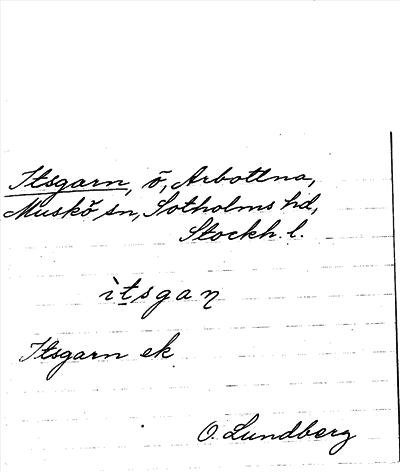 Itsgarn, ö, Arbottna,
Muskö sn, Sotholms hd,
Stockh. l.
ìtsgaɳ
Itsgarn ek
O. Lundberg